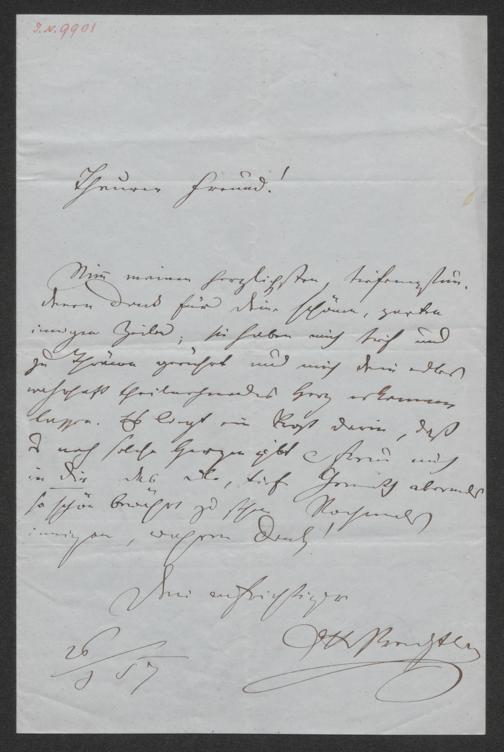 I.N. 9901
Theurer Freund!
Nimm meinen herzlichsten, tiefempfun-
denen Dank für deine schönen, zarten
innigen Zeilen; sie haben mich tief und
zu Thränen gerührt und mich dein edles
wahrhaft theilnehmendes Herz erkennen
lassen. Es liegt ein Trost darin, daß
es noch solche Herzen gibt
in Dir das edle, tiefe Gemüth abermals
so schön bewährt zu sehen Nochmals
innigen, wahren Dank!
Dein aufrichtiger
Otto Prechtler
26/ 57